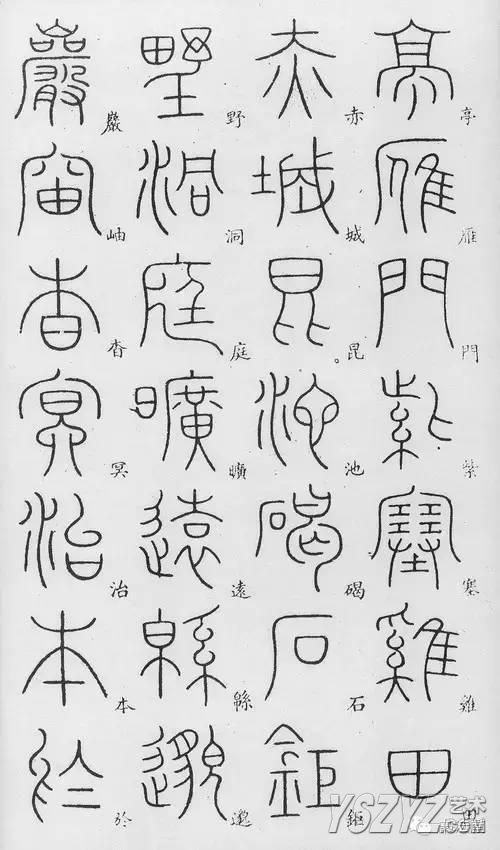 亭雁門紫塞雞田
亭雁門紫塞雞田
赤城昆池碣石鉅
赤城昆。池碣石鉅
野洞庭曠遠緜邈
野洞庭曠遠緜邈
巖岫杳冥治本於
巖岫杳冥治本於
YSZYZ艺术
.COM